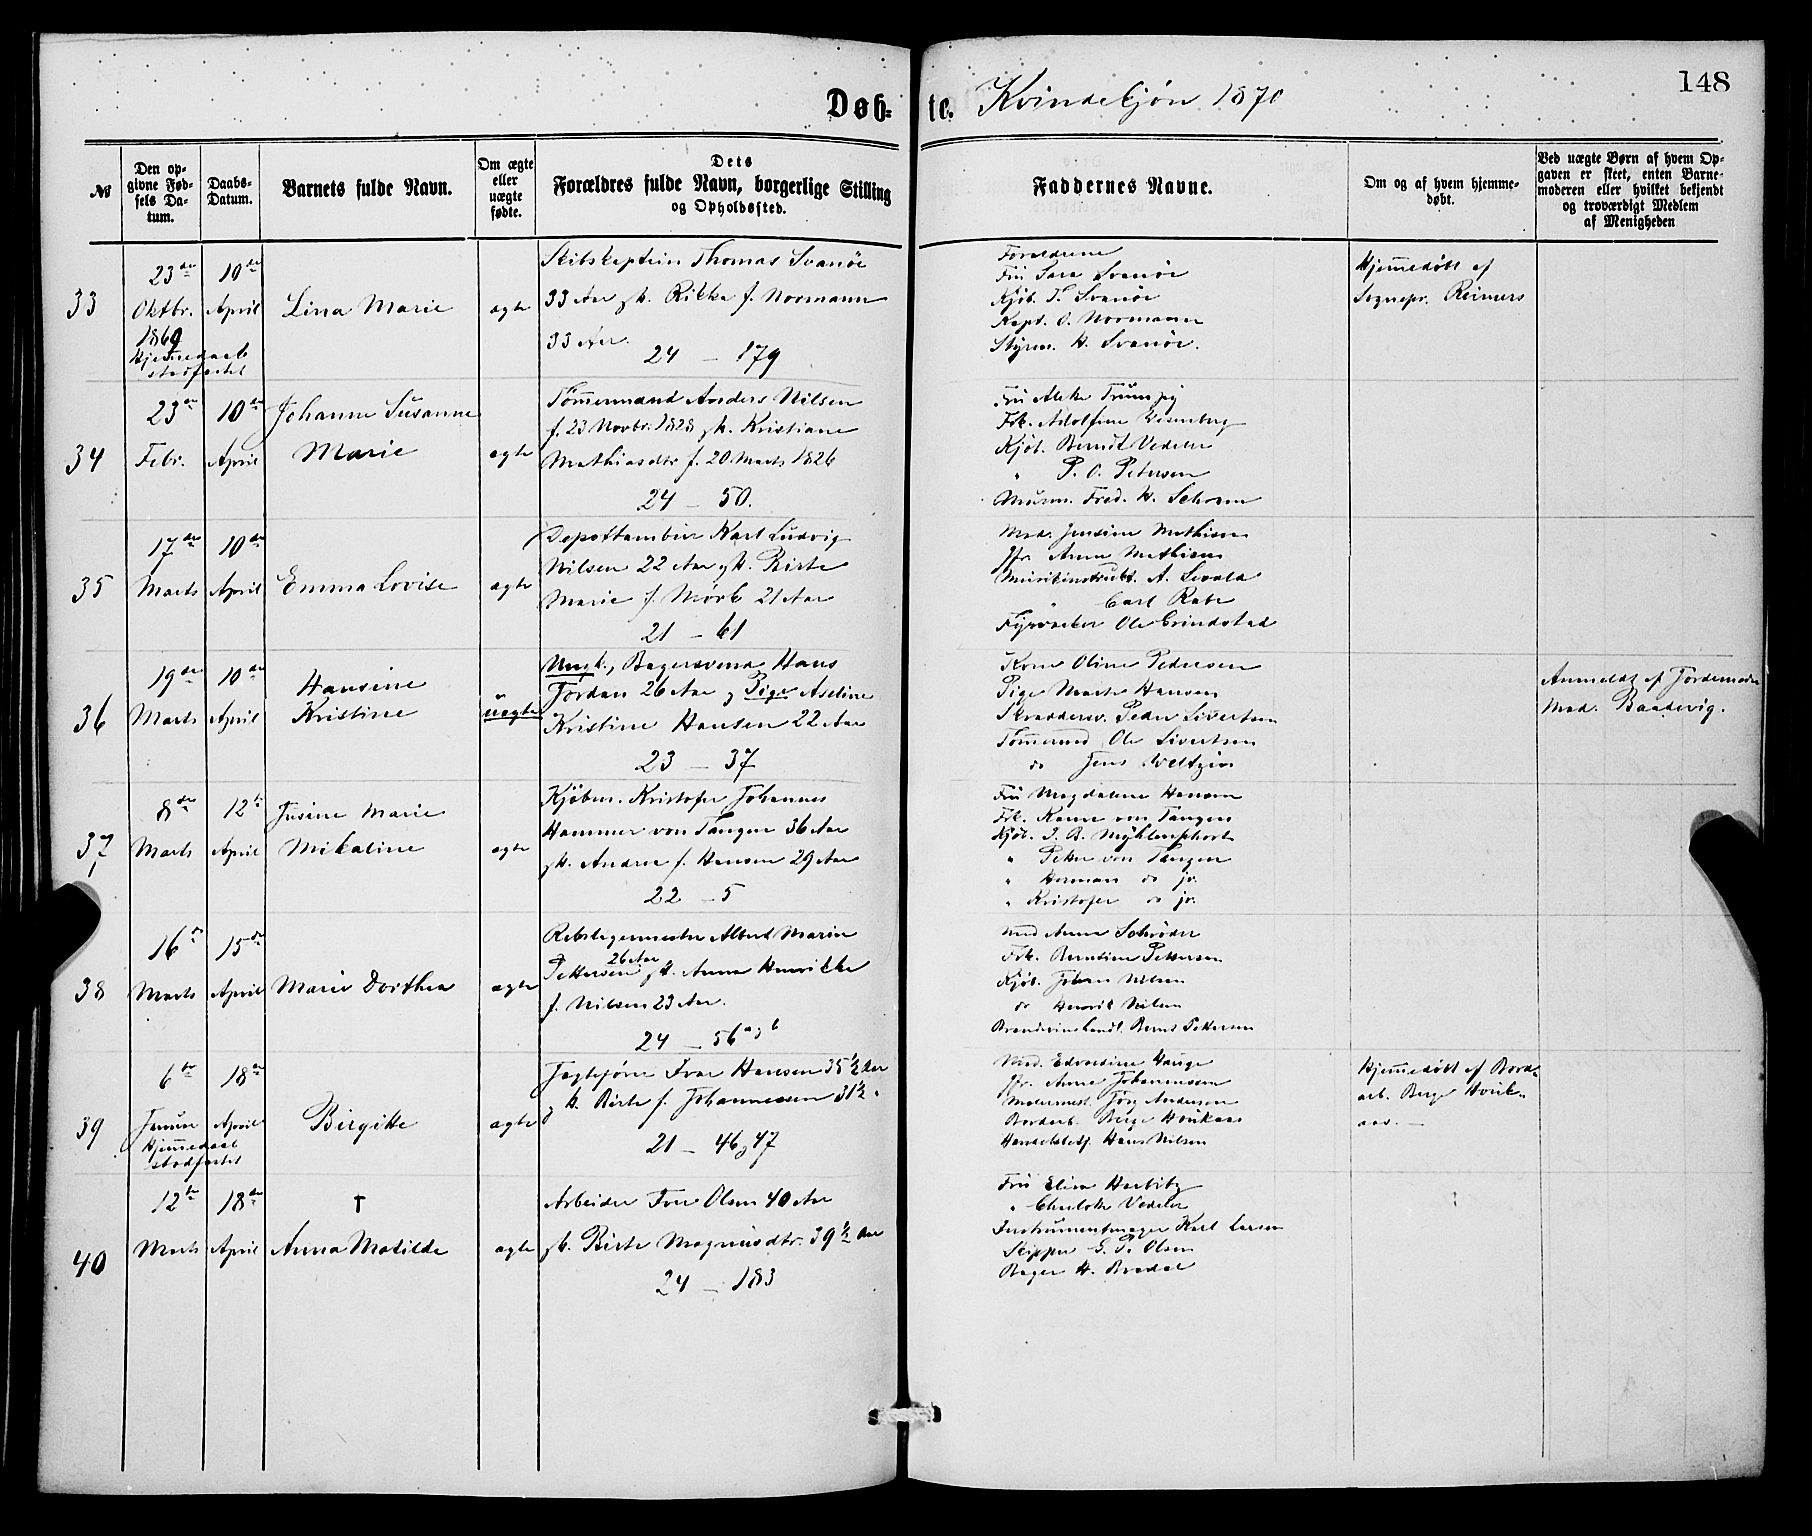 148
Døb- te. Kvindekjøn 1870
№
Den op-
givne Fød-
sels Da-
tum.
Daabs-
Datum.
Barnets fulde Navn.
Om ægte
eller
uægte
fødte.
Dets
Forældres fulde Navn, borgerlige Stilling
og Opholdssted.
Faddernes Navne.
Om og af hvem hjemme-
døbt.
Ved uægte Børn af hvem Op-
gaven er skeet, enten Barne-
moderen eller hvilket bekjendt
og troværdigt Medlem
af Menigheden
33
23de
Oktbr.
1869
Hjemmedaab
stadfæstet
10de
April
Lina Marie
ægte
Skibskaptein Thomas Svanøe
33 Aar g H. Rikke f. Normann
33 Aar.
24 – 179
Forældrene
Fru Sara Svanøe
Kjøb. T. Svanøe
Kapt. O. Normann
Styrm. H. Svanøe.
Hjemmedøbt af
Sognepr. Reimers
34
23de
Febr.
10de
April
Johanne Susanne
Marie
ægte
Tømmermand Anders Nilsen
f. 23 Novbr. 1828 g H. Kristiane
Mathiasdtr f. 20. Marts 1826
24 – 50.
Fru Aleke Trumpy
Frk. Adolfine
Kjøb. Berndt Vedeler
" P. O. Petersen
Murm. Fred. H. Schram
35
17de
Marts
10de
April
Emma Lovise
ægte
Depottambur Karl Ludvig
Nilsen 22 Aar g H. Birte
Marie f. Mørk 21 Aar
21 – 61
Mad. Jensine Mathisen
Jfr. Anna Mathisen
Musikinstrukt. A. Sewald
" Carl Rabe
Fyrvogter Ole Grindstad
36
19de
Marts
10de
April
Hansine
Kristine
uægte
Ungk., Bagersvend Hans
Jordan 26 Aar g Pige Aseline
Kristine Hansen 22 Aar
23 – 37
Kone Oline Pedersen
Pige Marte Hansen
Skræddersv. Peder Sivertsen
Tømermd Ole Sivertsen
do Jens
Anmeldt af Jordemoder
Mad. Baadsvig.
37
8de
Marts
12te
April
Jusine Marie
Mikaline
ægte
Kjøbm. Kristofer Johannes
Hammer von Tangen 36 Aar
g H. Andrea f. Hansen 29 Aar
22 – 5
Fru Magdalene Hansen
Frk. Hanna von Tangen
Kjøb. J. B. Myhlenphort
" Peter von Tangen
" Herman do jr.
" Kristofer do jr.
38
16de
Marts
15de
April
Marie Dorthea
ægte
Rebslagermester Albert Marin
26 Aar
Pettersen g H. Anna Henrikke
f. Nilsen 23 Aar.
24 – 56 a g b
Mad Anna Schrøder
Frk. Berntine Pettersen
Kjøb. Johan Nilsen
do Henrik Nilsen
Brændevinshandl. Berns Pettersen
39
6te
Januar
Hjemmedaab
stadfæstet
18de
April
Birgitte
ægte
Jagtefører Ivar Hansen 35½ Aar
g H. Birte f. Johannessen 31½ "
21 – 46 g 47
Mad. Edvardine Hauge
Jfr. Anna Johannessen
Malermest. Jørg Andersen
Bordarb. Berge Hvikaas
Handelsbetj. Hans Nilsen
Hjemmedøbt af Bord-
arb. Berge Hvik-
aas. –
40
12te
Marts
18de
April
†
Anna Matilde
ægte
Arbeider Iver Olsen 40 Aar
g H. Birte Magnusdtr. 39½ Aar
24 – 183
Fru Elisa Harbitz
" Charlotte Vedeler
Instrumentmager Karl Larsen
Skipper G. P. Olsen
Bager H. Bredal